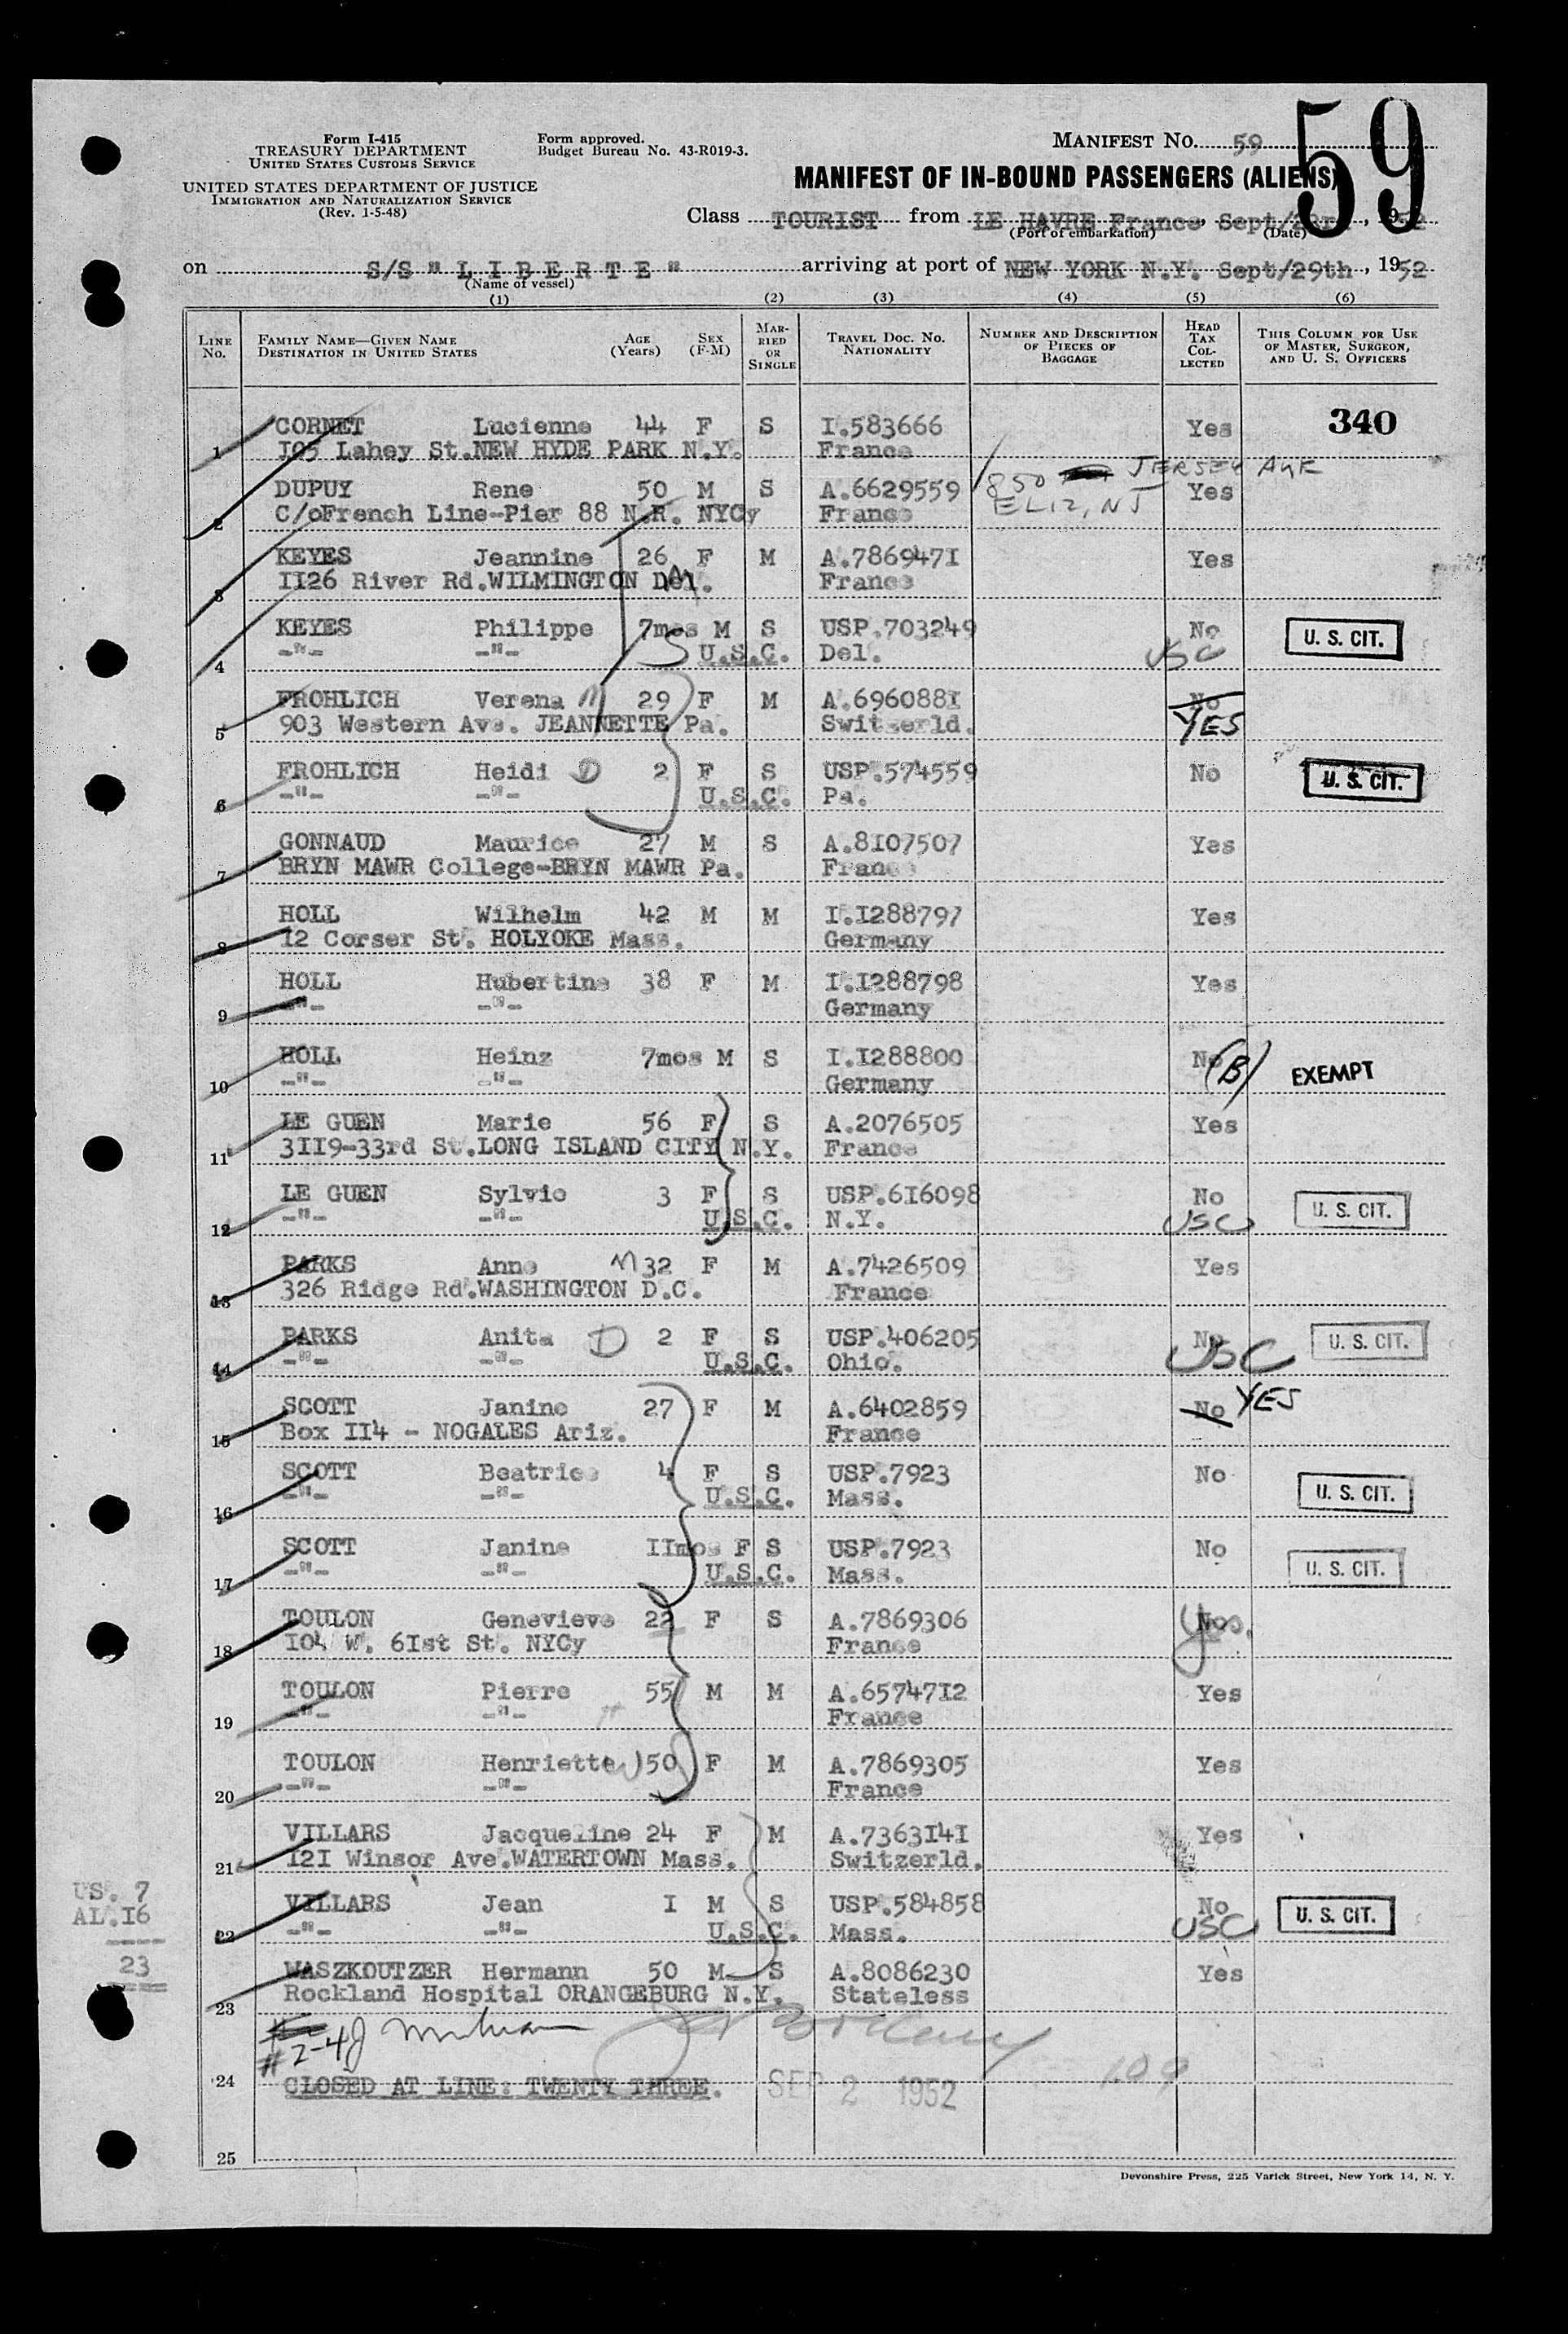 Form I-415
TREASURY DEPARTMENT
UNITED STATES CUSTOMS SERVICE
UNITED STATES DEPARTMENT OF JUSTICE
IMMIGRATION AND NATURALIZATION SERVICE
(Rev. 1-5-48)
Form approved.
Budget Bureau No. 43-R019-3.
MANIFEST NO. 59
59
MANIFEST OF IN-BOUND PASSENGERS (ALIENS)
Class TOURIST from LE HAVRE France, Sept/23rd, 1952
(Port of embarkation) (Date)
on S/S "L I B E R T E" arriving at port of NEW YORK N.Y. Sept/29th, 1952
(Name of vessel)
(1) (2) (3) (4) (5) (6)
LINE No. FAMILY NAME—GIVEN NAME DESTINATION IN UNITED STATES AGE (Years) SEX (F-M) MARRIED OR SINGLE TRAVEL DOC. NO. NATIONALITY NUMBER AND DESCRIPTION OF PIECES OF BAGGAGE HEAD TAX COLLECTED THIS COLUMN FOR USE OF MASTER, SURGEON, AND U. S. OFFICERS
CORNET Lucienne 44 F S I.583666 Yes 340
1 I05 Lahey St.NEW HYDE PARK N.Y. France
DUPUY Rene 50 M S A.6629559 850 JERSEY AVE Yes
2 C/oFrench Line-Pier 88 N.R. NYCy France ELIZ, NJ
KEYES Jeannine 26 F M A.786947I Yes
3 II26 River Rd.WILMINGTON Del. France
KEYES Philippe 7mos M S USP.703249 No U. S. CIT.
4 -"- -"- U.S.C. Del. USC
FROHLICH Verena M 29 F M A.696088I No
5 903 Western Ave. JEANNETTE Pa. Switzerld. YES
FROHLICH Heidi D 2 F S USP.574559 No U. S. CIT.
6 -"- -"- U.S.C. Pa.
GONNAUD Maurice 27 M S A.8I07507 Yes
7 BRYN MAWR College-BRYN MAWR Pa. France
HOLL Wilhelm 42 M M I.I288797 Yes
8 I2 Corser St. HOLYOKE Mass. Germany
HOLL Hubertine 38 F M I.I288798 Yes
9 -"- -"- Germany
HOLL Heinz 7mos M S I.I288800 No (B) EXEMPT
10 -"- -"- Germany
LE GUEN Marie 56 F S A.2076505 Yes
11 3II9-33rd St.LONG ISLAND CITY N.Y. France
LE GUEN Sylvie 3 F S USP.6I6098 No U. S. CIT.
12 -"- -"- U.S.C. N.Y. USC
PARKS Anne M 32 F M A.7426509 Yes
13 326 Ridge Rd.WASHINGTON D.C. France
PARKS Anita D 2 F S USP.406205 No U. S. CIT.
14 -"- -"- U.S.C. Ohio. USC
SCOTT Janine 27 F M A.6402859 No YES
15 Box II4 - NOGALES Ariz. France
SCOTT Beatrice 4 F S USP.7923 No
16 -"- -"- U.S.C. Mass. U. S. CIT.
SCOTT Janine IImos F S USP.7923 No
17 -"- -"- U.S.C. Mass. U. S. CIT.
TOULON Genevieve 22 F S A.7869306 Yes
18 I04 W. 6Ist St. NYCy France
TOULON Pierre 55 M M A.65747I2 Yes
19 -"- -"- France
TOULON Henriette W 50 F M A.7869305 Yes
20 -"- -"- France
VILLARS Jacqueline 24 F M A.7363I4I Yes
21 I2I Winsor Ave.WATERTOWN Mass. Switzerld.
US. 7
VILLARS Jean I M S USP.584858 No U. S. CIT.
AL.I6
22 -"- -"- U.S.C. Mass. USC
23
WASZKOUTZER Hermann 50 M S A.8086230 Yes
23 Rockland Hospital ORANGEBURG N.Y. Stateless
#2-4
24 CLOSED AT LINE: TWENTY THREE. SEP 2 1952 109
25
Devonshire Press, 225 Varick Street, New York 14, N. Y.